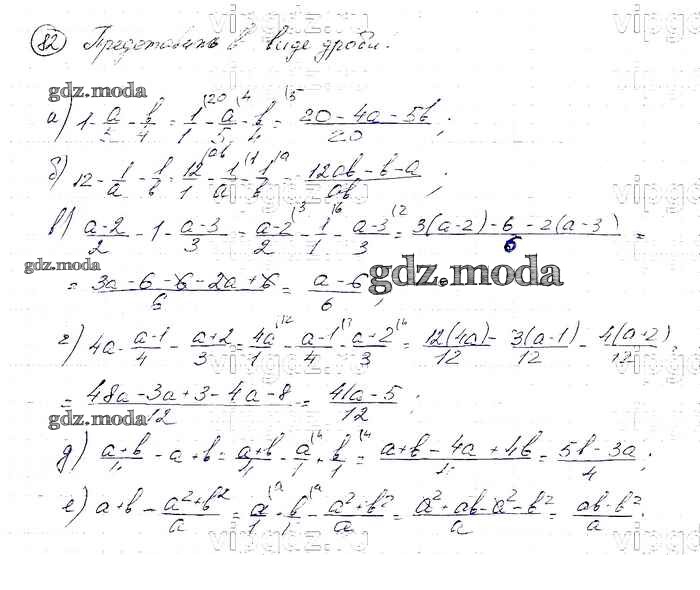 82 Представить в виде дроби.
gdz.moda
а) 1 - a/5 - b/4 = 1/1 (20 - a/5 (4 - b/4 (5 = (20 - 4a - 5b)/20;
б) 12 - 1/a - 1/b = 12/1 (ab - 1/a (b - 1/b (a = (12ab - b - a)/ab;
в) (a-2)/2 - 1 - (a-3)/3 = (a-2)/2 (3 - 1/1 (6 - (a-3)/3 (2 = (3(a-2) - 6 - 2(a-3))/6 =
gdz.moda
= (3a - 6 - 6 - 2a + 6)/6 = (a - 6)/6;
gdz.moda
г) 4a - (a-1)/4 - (a+2)/3 = 4a/1 (12 - (a-1)/4 (3 - (a+2)/3 (4 = 12(4a)/12 - 3(a-1)/12 - 4(a+2)/12
= (48a - 3a + 3 - 4a - 8)/12 = (41a - 5)/12;
gdz.moda
д) (a+b)/4 - a + b = (a+b)/4 - a/1 (4 + b/1 (4 = (a+b - 4a + 4b)/4 = (5b - 3a)/4;
е) a+b - (a²+b²)/a = a/1 (a + b/1 (a - (a²+b²)/a = (a² + ab - a² - b²)/a = (ab - b²)/a.
vipgdz.ru